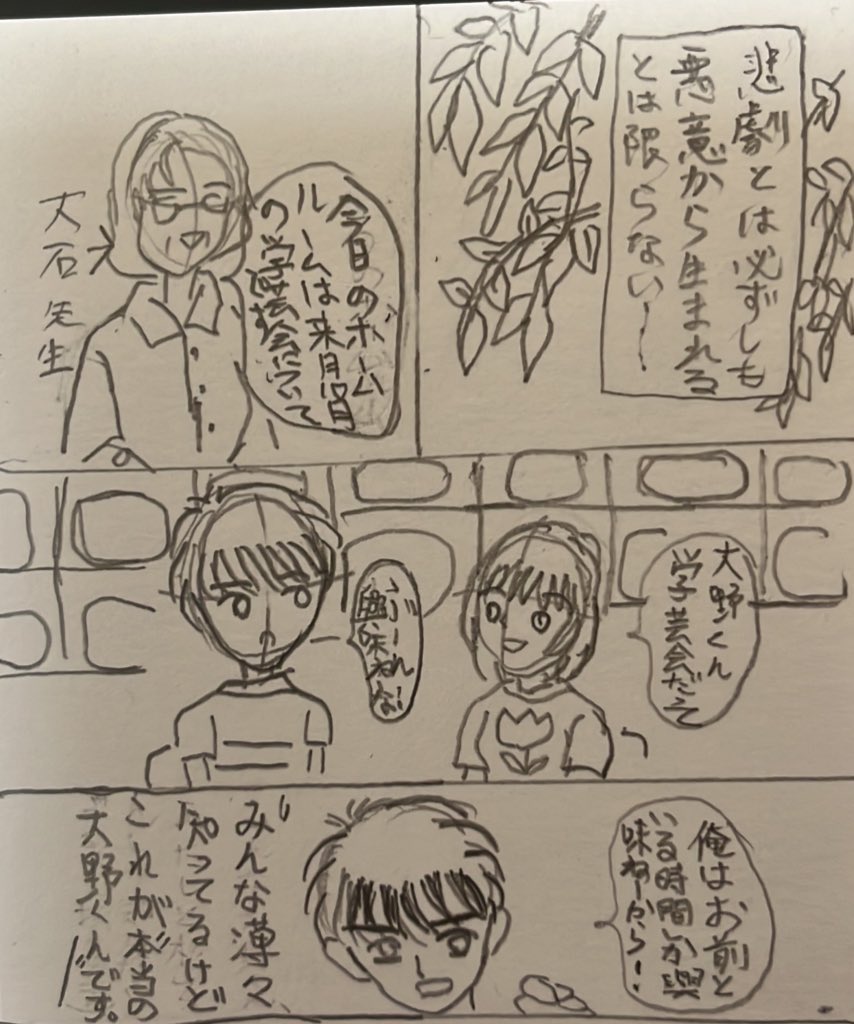 悲劇とは必ずしも
悪意から生まれる
とは限らない〜
今日のホーム
ルームは来月18日
の学芸会について
大石先生
大野くん
学芸会だって
ふーん
興味ねーな!
俺はお前と
いる時間しか興
味ねーから!
みんな薄々
知ってるけど
これが本当の
大野くんです。